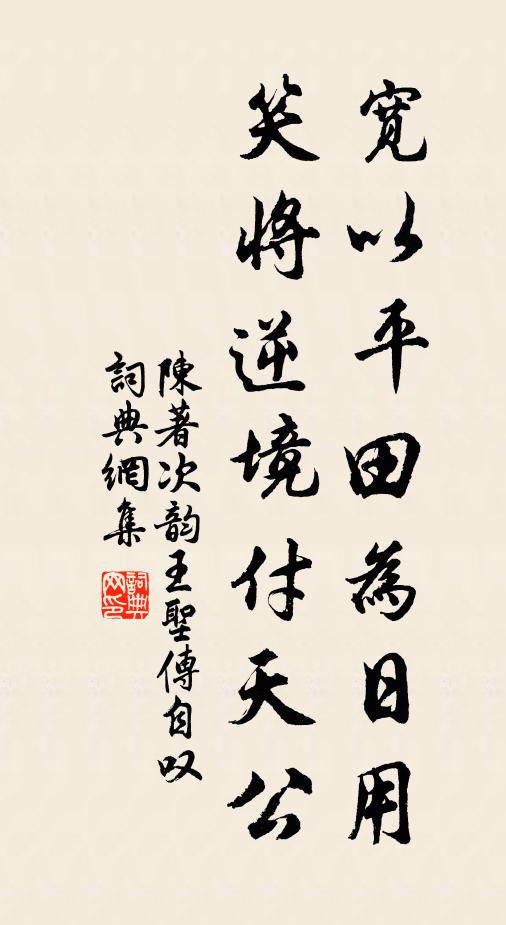 寬以平田為日用
笑將逆境付天公
陳著次韵王聖傳自叹
詞典網集
詞典
网印